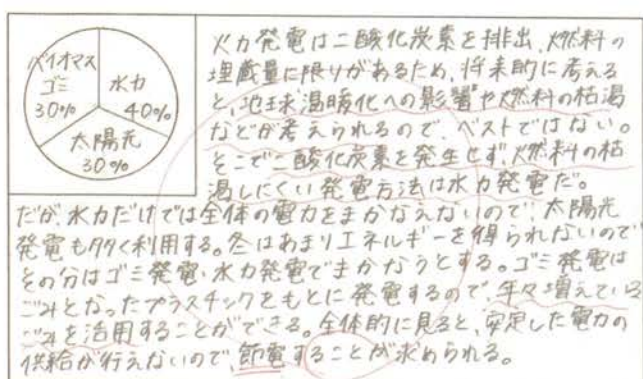 バイオマス
ゴミ
30%
水力
40%
太陽光
30%
火力発電は二酸化炭素を排出、燃料の
埋蔵量に限りがあるため、将来的に考える
と、地球温暖化への影響や燃料の枯渇
などが考えられるので、ベストではない。
そこで二酸化炭素を発生せず、燃料の枯
渇しにくい発電方法は水力発電だ。
だが、水力だけでは全体の電力をまかなえないので、太陽光
発電も多く利用する。冬はあまりエネルギーを得られないので
その分はゴミ発電・水力発電でまかなうとする。ゴミ発電は
ごみとなったプラスチックをもとに発電するので、年々増えている
ごみを活用することができる。全体的に見ると、安定した電力の
供給が行えないので、節電することが求められる。